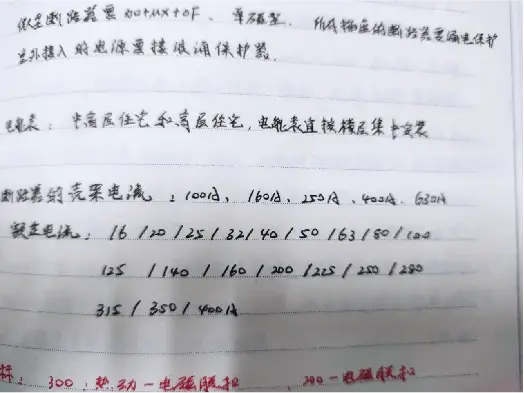 微型断路器要 +MX+OF、单磁型、所有插座的断路器要漏电保护
室外接入的电源要接浪涌保护器.
电能表: 中高层住宅和高层住宅, 电能表宜按楼层集中安装
断路器的壳架电流: 100A、160A、250A、400A、630A
额定电流: 16/20/25/32/40/50/63/80/100
125 /140 / 160 /200 /225/ 250 /280
315 / 350 / 400A
300: 热动-电磁脱扣 、200-电磁脱扣